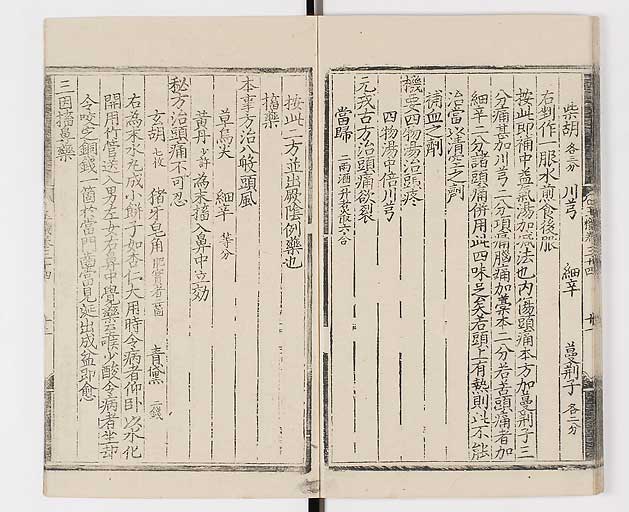 柴胡 各三分 川芎 細辛 蔓荆子 各二分
右剉作一服水煎食後服
按此即補中益氣湯加减法也内傷頭痛本方加蔓荆子三
分痛甚加川芎二分頂痛腦痛加藁本二分若苦頭痛者加
細辛二分諸頭痛併用此四味足矣若頭上有熱則此不能
治當以清空之劑
補血之劑
機要四物湯治頭疼
四物湯中倍川芎
元戎古方治頭痛欲裂
當歸 二兩酒一升煮取六合
按此二方並出厥陰例藥也
搐藥
本事方治八般頭風
草烏尖 細辛 等分
黄丹 少許 為末搐入鼻中立効
秘方治頭痛不可忍
玄胡 七枚 猪牙皂角 肥實者二箇 青黛 二錢
右為末水丸成小餅子如杏仁大用時令病者仰卧以水化
開用竹管送入男左女右鼻中覺藥至喉少酸令病者坐却
令咬定銅錢一箇於當門齒當見涎出成盆即愈
三因搐鼻藥